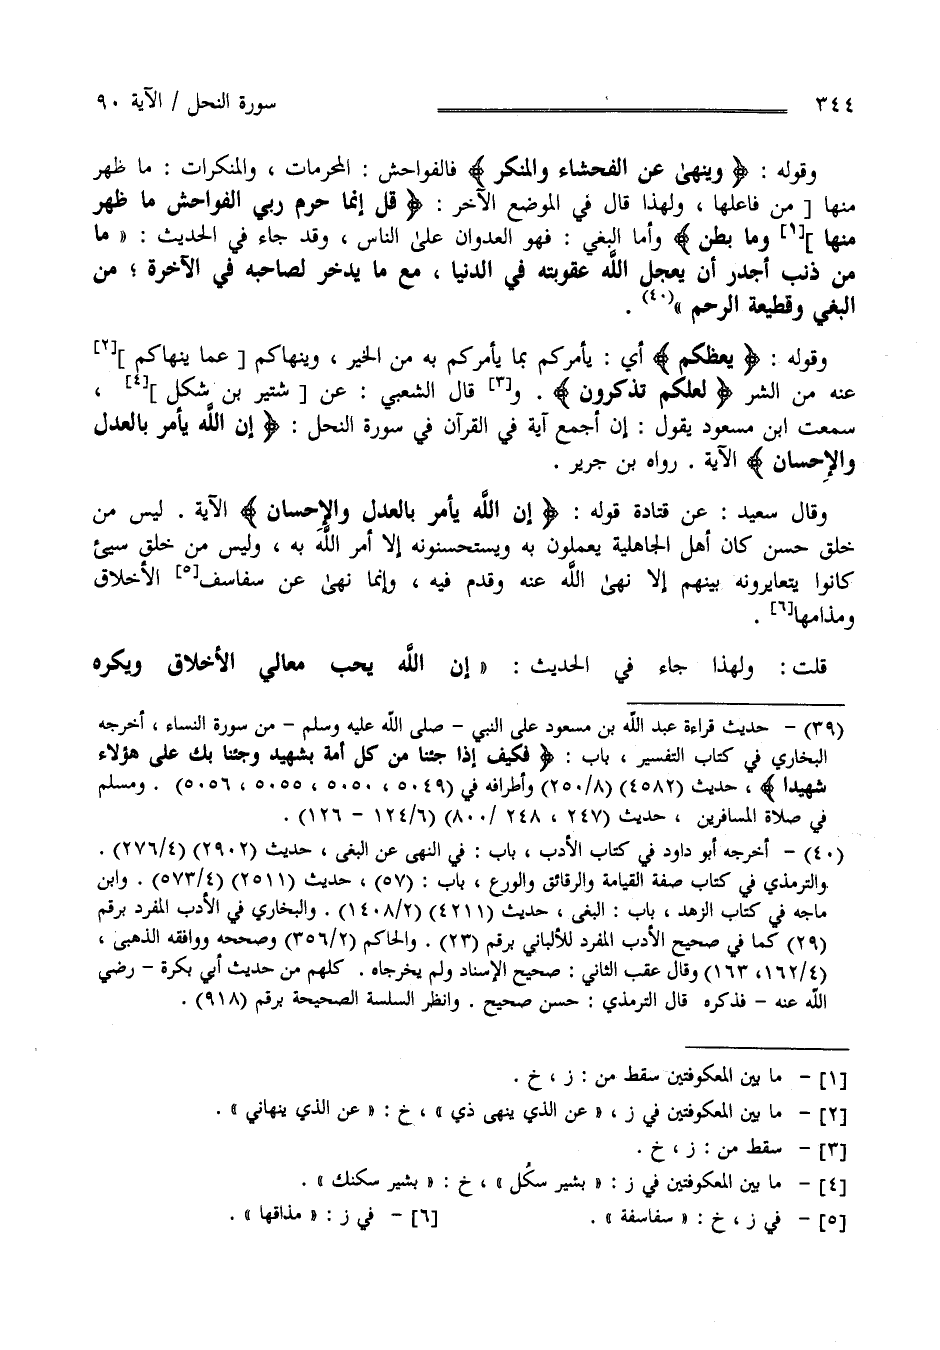 ٣٤٤ سورة النحل / الآية ٩٠
وقوله : ﴿ وينهىٰ عن الفحشاء والمنكر ﴾ فالفواحش : المحرمات ، والمنكرات : ما ظهر
منها [ من فاعلها ، ولهذا قال في الموضع الآخر : ﴿ قل إنما حرم ربي الفواحش ما ظهر
منها ][١] وما بطن ﴾ وأما البغي : فهو العدوان علىٰ الناس ، وقد جاء في الحديث : « ما
من ذنب أجدر أن يعجل اللَّه عقوبته في الدنيا ، مع ما يدخر لصاحبه في الآخرة ؛ من
البغي وقطيعة الرحم »(٤٠) .
وقوله : ﴿ يعظكم ﴾ أي : يأمركم بما يأمركم به من الخير ، وينهاكم [ عما ينهاكم ][٢]
عنه من الشر ﴿ لعلكم تذكرون ﴾ . و[٣] قال الشعبي : عن [ شتير بن شكل ][٤] ،
سمعت ابن مسعود يقول : إن أجمع آية في القرآن في سورة النحل : ﴿ إن اللَّه يأمر بالعدل
والإحسان ﴾ الآية . رواه بن جرير .
وقال سعيد : عن قتادة قوله : ﴿ إن اللَّه يأمر بالعدل والإحسان ﴾ الآية . ليس من
خلق حسن كان أهل الجاهلية يعملون به ويستحسنونه إلا أمر اللَّه به ، وليس من خلق سيئ
كانوا يتعايرونه بينهم إلا نهىٰ اللَّه عنه وقدم فيه ، وإنما نهىٰ عن سفاسف[٥] الأخلاق
ومذامها[٦] .
قلت : ولهذا جاء في الحديث : « إن اللَّه يحب معالي الأخلاق ويكره
(٣٩) - حديث قراءة عبد اللَّه بن مسعود على النبي - صلى اللَّه عليه وسلم - من سورة النساء ، أخرجه
البخاري في كتاب التفسير ، باب : ﴿ فكيف إذا جئنا من كل أمة بشهيد وجئنا بك على هؤلاء
شهيدا ﴾ ، حديث (٤٥٨٢) (٢٥٠/٨) وأطرافه في (٥٠٤٩ ، ٥٠٥٠ ، ٥٠٥٥ ، ٥٠٥٦) . ومسلم
في صلاة المسافرين ، حديث (٢٤٧ ، ٢٤٨ /٨٠٠) (١٢٤/٦ - ١٢٦) .
(٤٠) - أخرجه أبو داود في كتاب الأدب ، باب : في النهى عن البغى ، حديث (٢٩٠٢) (٢٧٦/٤) .
والترمذي في كتاب صفة القيامة والرقائق والورع ، باب : (٥٧) ، حديث (٢٥١١) (٥٧٣/٤) . وابن
ماجه في كتاب الزهد ، باب : البغى ، حديث (٤٢١١) (١٤٠٨/٢) . والبخاري في الأدب المفرد برقم
(٢٩) كما في صحيح الأدب المفرد للألباني برقم (٢٣) . والحاكم (٣٥٦/٢) وصححه ووافقه الذهبى ،
(١٦٢/٤، ١٦٣) وقال عقب الثاني : صحيح الإسناد ولم يخرجاه . كلهم من حديث أبي بكرة - رضي
اللَّه عنه - فذكره قال الترمذي : حسن صحيح . وانظر السلسة الصحيحة برقم (٩١٨) .
[١] - ما بين المعكوفتين سقط من : ز ، خ .
[٢] - ما بين المعكوفتين في ز ، « عن الذي ينهى ذي » ، خ : « عن الذي ينهاني » .
[٣] - سقط من : ز ، خ .
[٤] - ما بين المعكوفتين في ز : « بشير سكُل » ، خ : « بشير سكنك » .
[٥] - في ز ، خ : « سفاسفة » . [٦] - في ز : « مذاقها » .